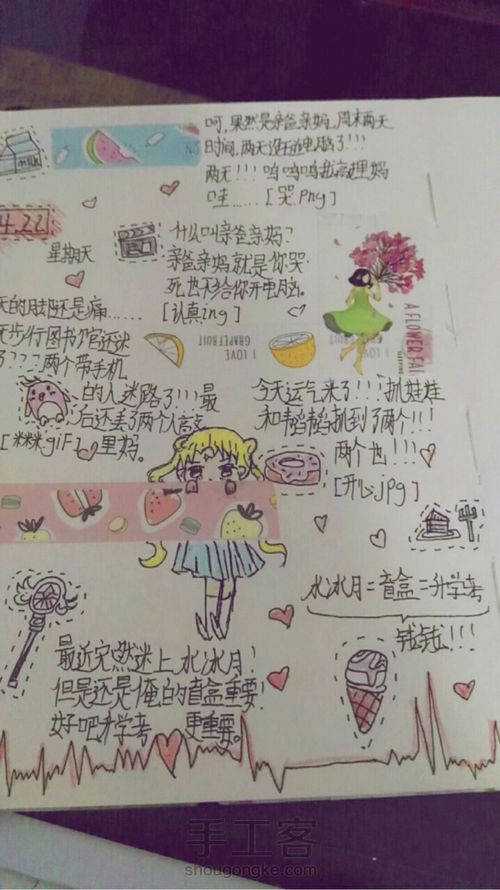 呵,果然是亲爸亲妈。周末两天
时间,两天没玩电脑了!!!
两天!!!呜呜呜我高里妈
哇……[哭.png]
milk
4.22
星期天
什么叫亲爸亲妈?
亲爸亲妈就是你哭
死也不给你开电脑。
[认真ing]
天的脚还是痛……
步行图书馆还迷
了????两个带手机
的人迷路了!!!最
后还丢了两个人高
里妈。
giF]
I LOVE
GRAPEFRUIT
I LOVE
GRAPEFRUIT
A FLOWER FAI
今天运气来了!!!扒娃娃
和韬韬扒到了两个!!!
两个也!!!
[开心.jpg]
水冰月=盲盒=升学考
钱钱!!!
最近突然迷上水冰月!
但是还是俺的盲盒重要!
好吧升学考 更重要。
手工客
shougongke.com